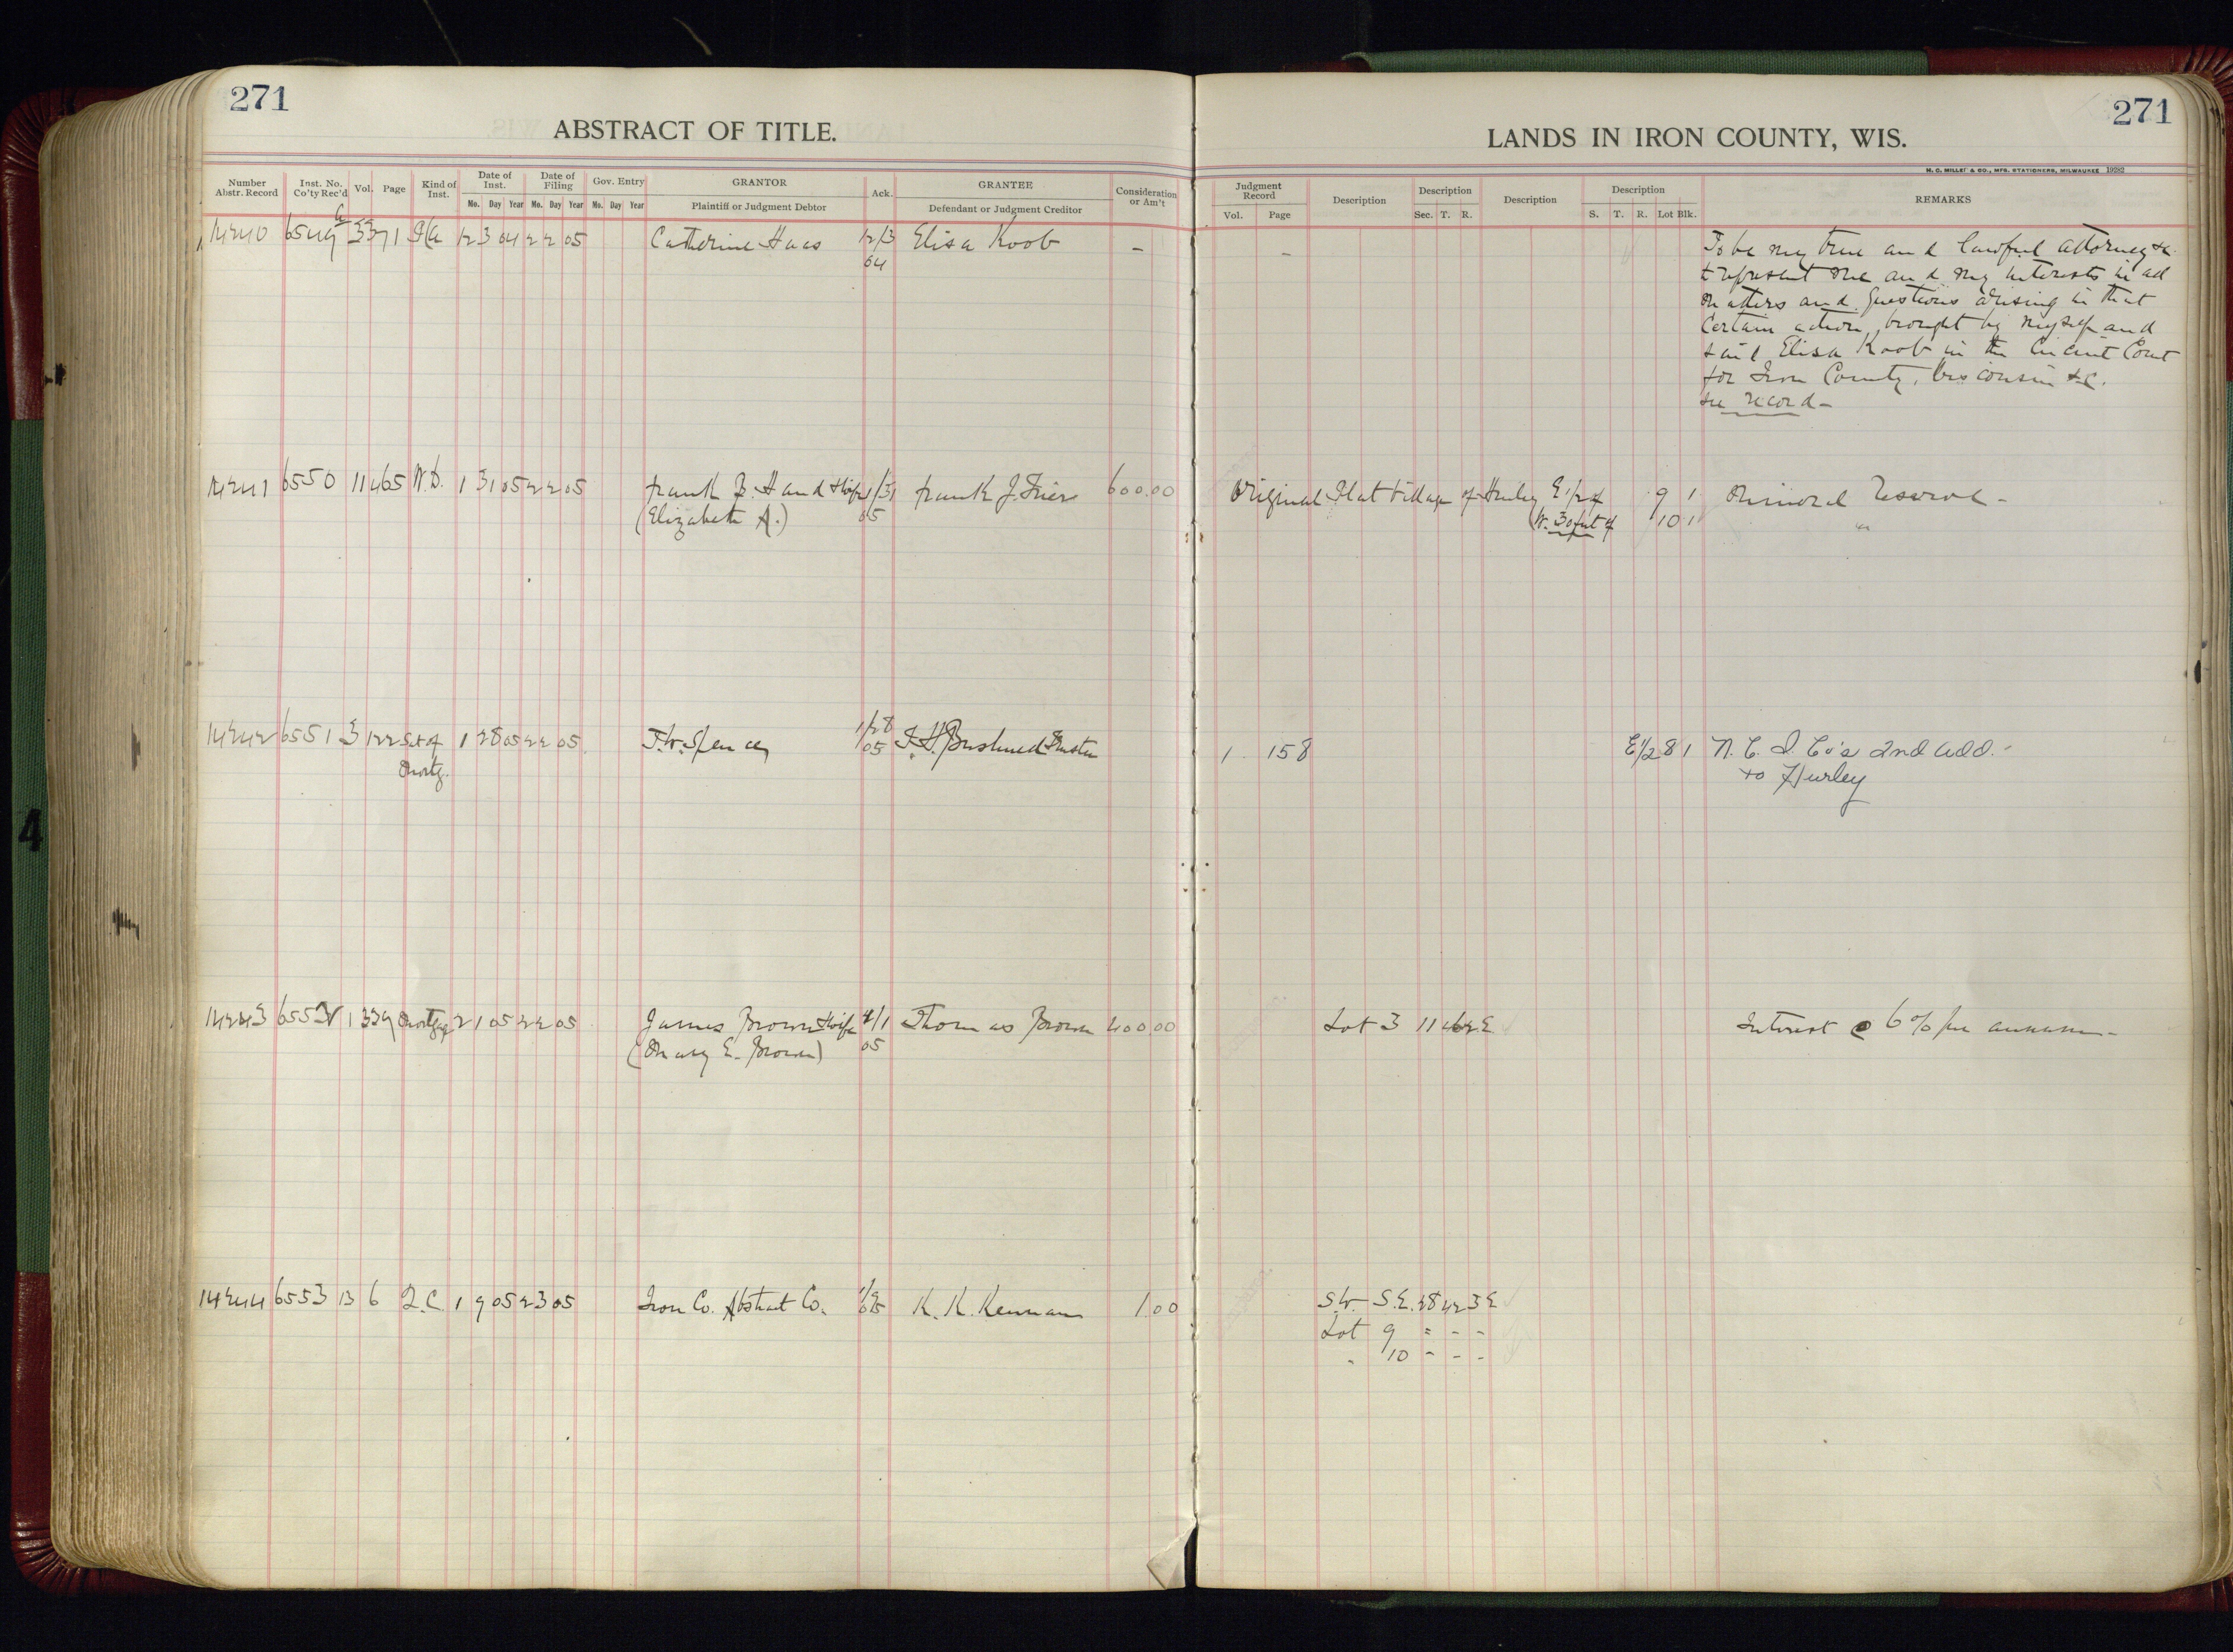 271
ABSTRACT OF TITLE.
Number Abstr. Record Inst. No. Co'ty Rec'd Vol. Page Kind of Inst. Date of Inst. Date of Filing Gov. Entry GRANTOR Ack. GRANTEE Consideration or Am't
Mo. Day Year Mo. Day Year Mo. Day Year Plaintiff or Judgment Debtor Defendant or Judgment Creditor
14240 6549 12 3 04 2 2 05 Catherine Haas 12/3 Elisa Koob -
04
14241 6550 11 465 W.D. 1 31 05 2 2 05 Frank B. Hand & wife 1/31 Frank J. 600.00
(Elizabeth A.) 05
14242 6551 3 122 Sat of 1 28 05 2 2 05 1/28
Mortg. 05 Trustee
14243 6552 1 339 Mortgage 2 1 05 2 2 05 James Brown & wife 2/1 Thomas Brown 400.00
(Mary E. Brown) 05
14244 6553 13 6 Q.C. 1 9 05 2 3 05 Iron Co. Abstract Co. 1/9 05 K. K. Kennan 1.00
271
LANDS IN IRON COUNTY, WIS.
H. C. MILLER & CO., MFG. STATIONERS, MILWAUKEE 19282
Judgment Record Description Description Description Description REMARKS
Vol. Page Sec. T. R. S. T. R. Lot Blk.
- To be my true and lawful attorney &c
t represent me and my interests in all
matters and questions arising in that
certain action brought by myself and
said Elisa Koob in the Circuit Court
for Iron County, Wisconsin &c.
see record -
Original Plat Village of Hurley E 1/2 of 9 1 Mineral Reserve -
(W. 30 feet of 10 1 "
1 158 E 1/2 8 1 N. L. I. Co's 2nd Add. -
to Hurley
Lot 3 11 46 2 E Interest @ 6% per annum -
S.W. S.E. 28 42 3 E
Lot 9 " - -
" 10 - - -
4